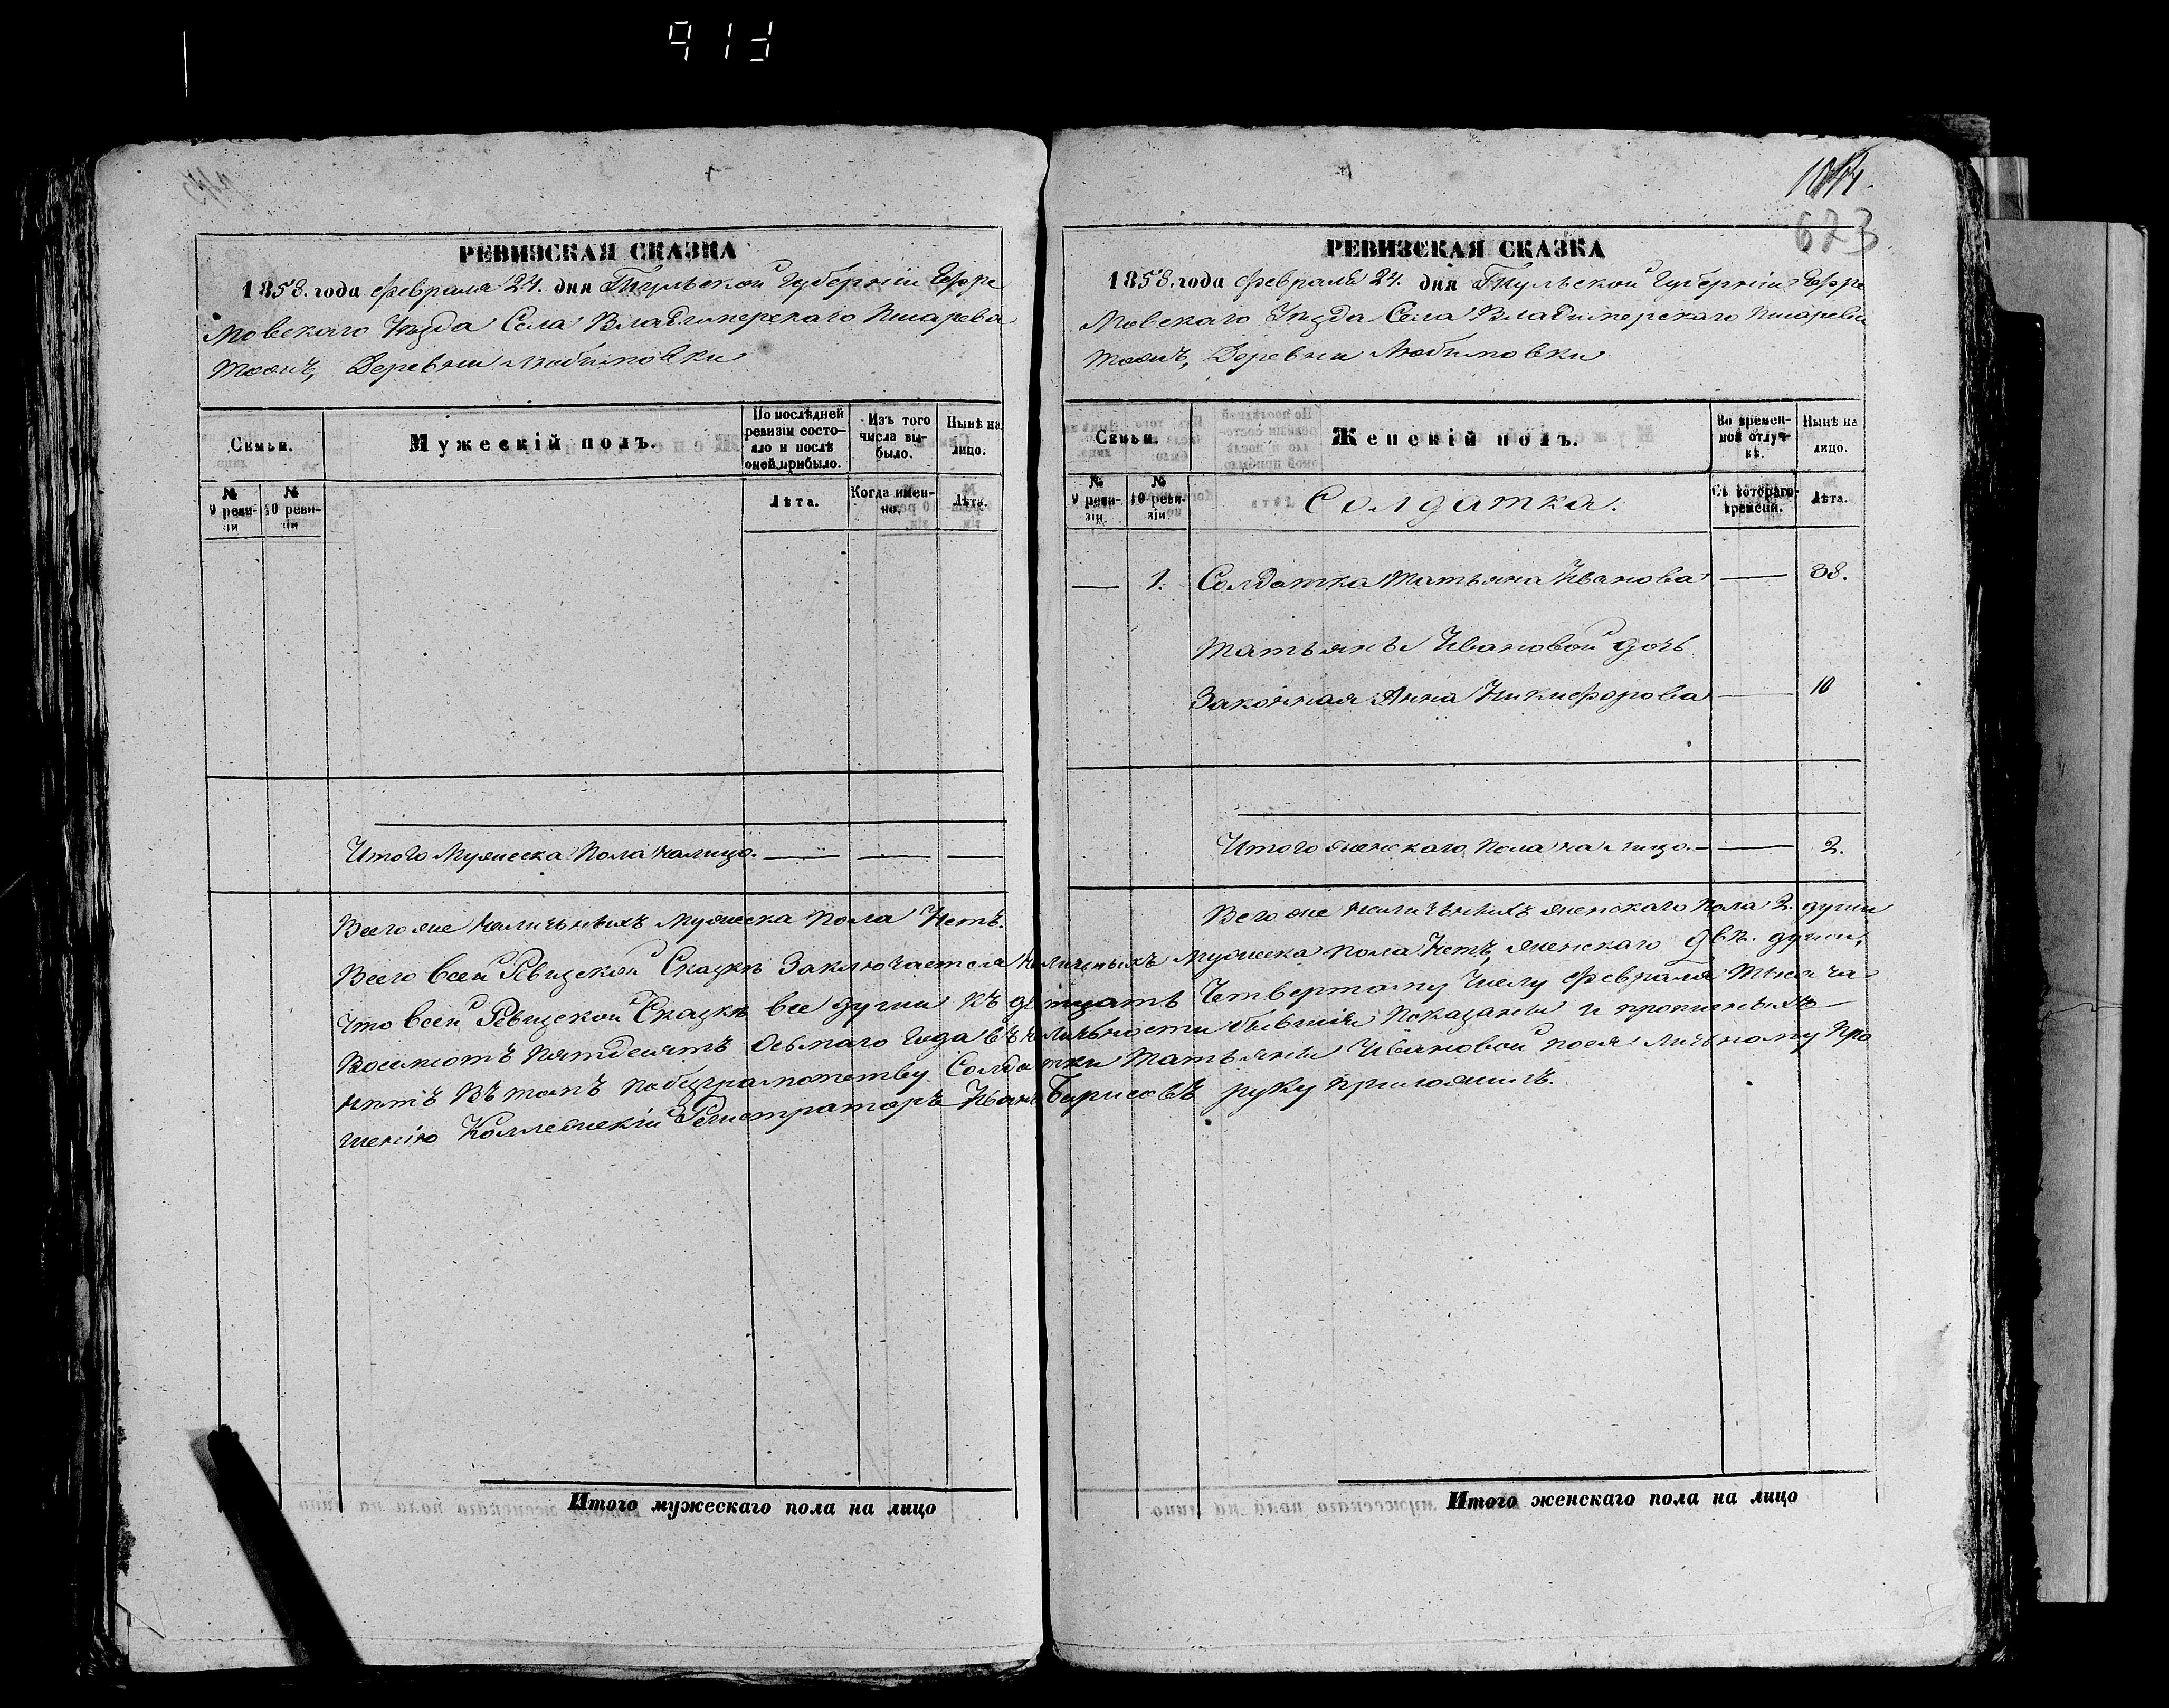 РЕВИЗСКАЯ СКАЗКА
1858. года Февраля 24. дня Тульской Губерніи Ефре
мовскаго Уѣзда Села Владимерскаго Писарева
тожъ, Деревни Любимовки
Семьи.
Мужескій полъ.
По послѣдней ревизіи состо-
яло и послѣ оной прибыло.
Изъ того числа вы-
было.
Нынѣ на лицо.
№ 9 реви-
зіи
№ 10 реви-
зіи
Лѣта.
Когда имен-
но.
Лѣта.
Итого Мужеска Пола налицо.
Всего же наличныхъ Мужеска Пола Нетъ.
Итого мужескаго пола на лицо
623
РЕВИЗСКАЯ СКАЗКА
1858. года Февраля 24. дня Тульской Губерніи Ефре
мовскаго Уѣзда Села Владимерскаго Писарева
тожъ, Деревни Любимовки
Семьи.
Женскій полъ.
Во времен-
ной отлуч-
кѣ.
Нынѣ на лицо.
№ 9 реви-
зіи
№ 10 реви-
зіи
Солдатка.
Съ котораго времени.
Лѣта.
— 1. Солдатка Татьяна Иванова — 38.
Татьяны Ивановой дочь
Законная Анна Никифорова — 10
Итого женскаго пола на лицо. — 2.
Всего же наличныхъ женскаго пола 2. души
Всего всей Ревизской Сказкѣ Заключается наличныхъ мужеска пола Нетъ, женскаго двѣ. души,
что всей Ревизской Сказкѣ все души къ двадцать Четвертому Числу Февраля Тысяча
Восемсотъ Пятдесятъ Осьмаго Года въ наличности бывшія показаны и прописныхъ
нѣтъ въ томъ побезграмотству Солдатки Татьяны Ивановой поея личному про
шенію Коллежскій Регистраторъ Иванъ Борисовъ руку приложилъ.
Итого женскаго пола на лицо